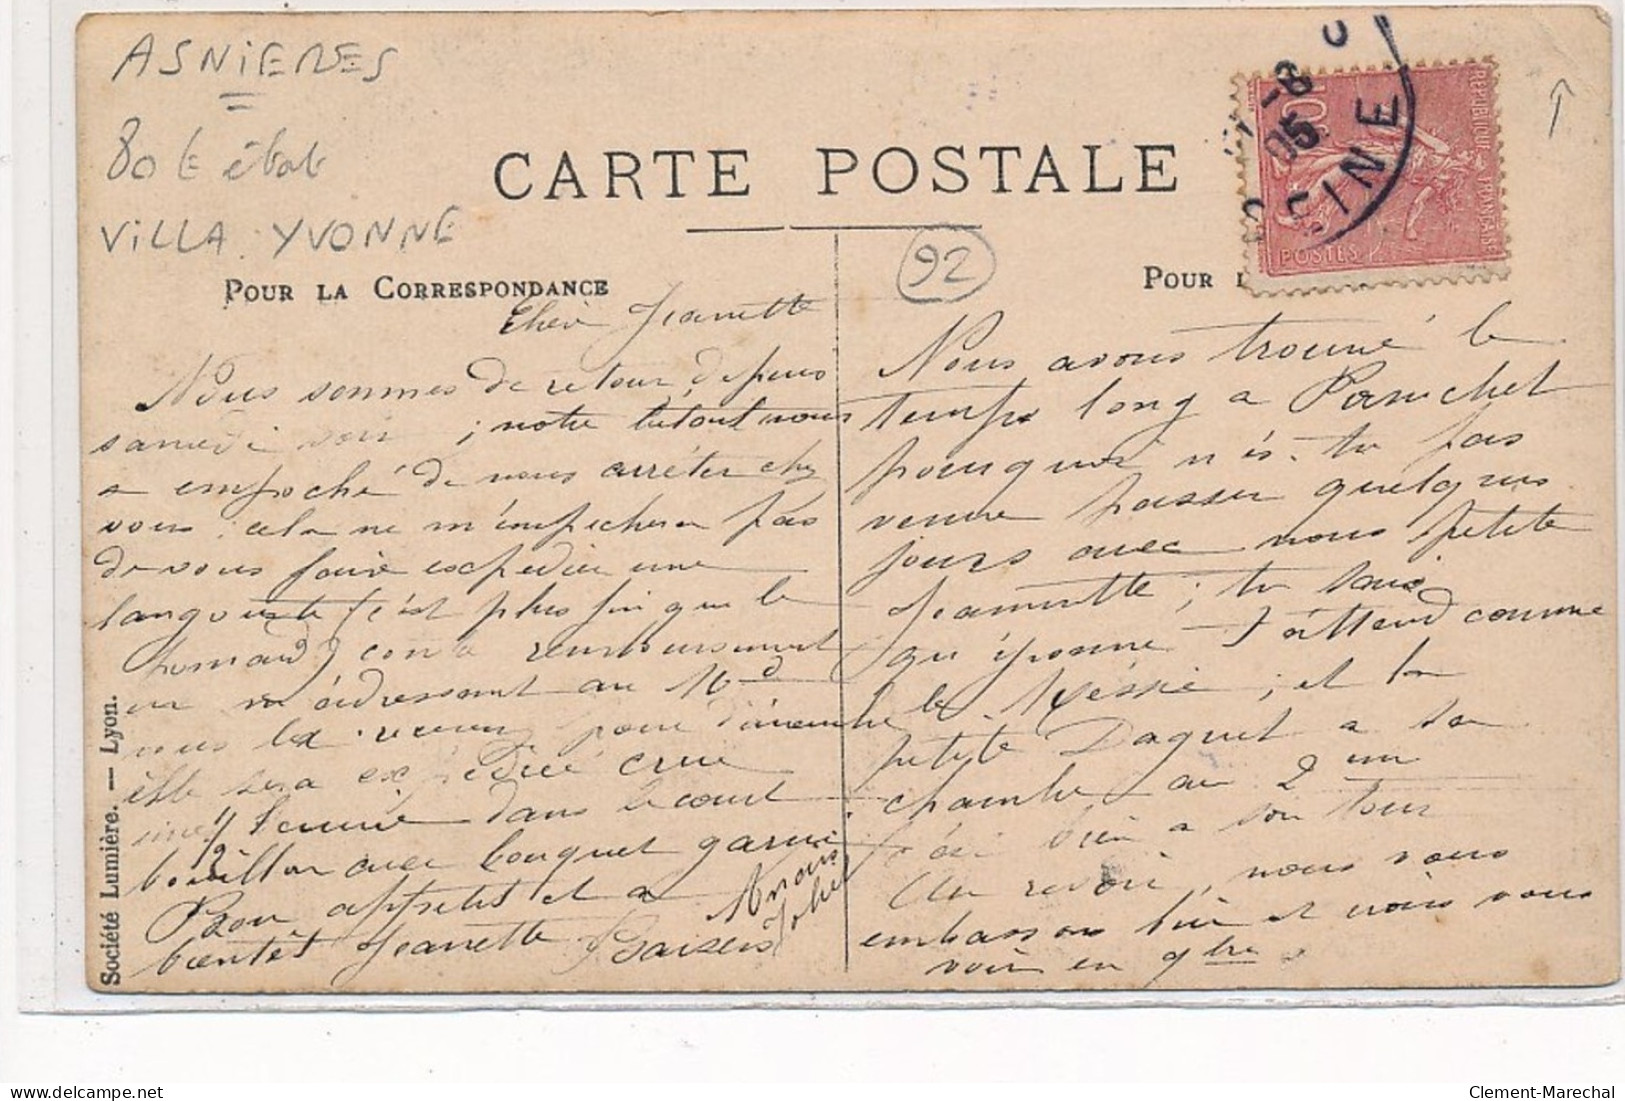 ASNIERES
80 € état
VILLA YVONNE
CARTE POSTALE
92
POUR LA CORRESPONDANCE
POUR L
REPUBLIQUE FRANÇAISE
POSTES
10
-8
05
SEINE
Chère Jeanette
Nous sommes de retour depuis
samedi soir ; notre
a empoché de nous arrêter chez
vous ; cela ne m'empêchera pas
de vous faire expédier une
langouste (c'est plus fin que le
homard) contre remboursement
en m'adressant au Md
vous la recevrez pour dimanche
elle sera expédiée crue
dans le court
bouillon avec bouquet garni
Bon appétit et a
bientôt Jeanette Baisers
Nous avons trouvé le
temps long a Panichet
pourquoi n'es-tu pas
venue passer quelques
jours avec nous petite
Jeannette ; tu sais
qu'Yvonne t'attend comme
le Messie ; et la
petite Daquet a sa
chambre au 2
bien a son tour
Au revoir, nous vous
embrassons bien et irons vous
voir en 9bre
Société Lumière. — Lyon.
Clement-Marechal
delcampe.net